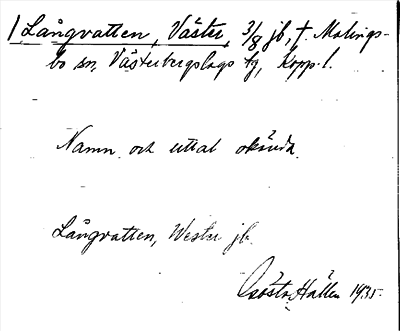 1 Långvatten, Väster, 3/8 jb, t. Malings-
bo sn, Västerbergslags tg, Kopp. l.
Namn och uttal okända.
Långvatten, Wester jb.
Gösta Hallen 1935.